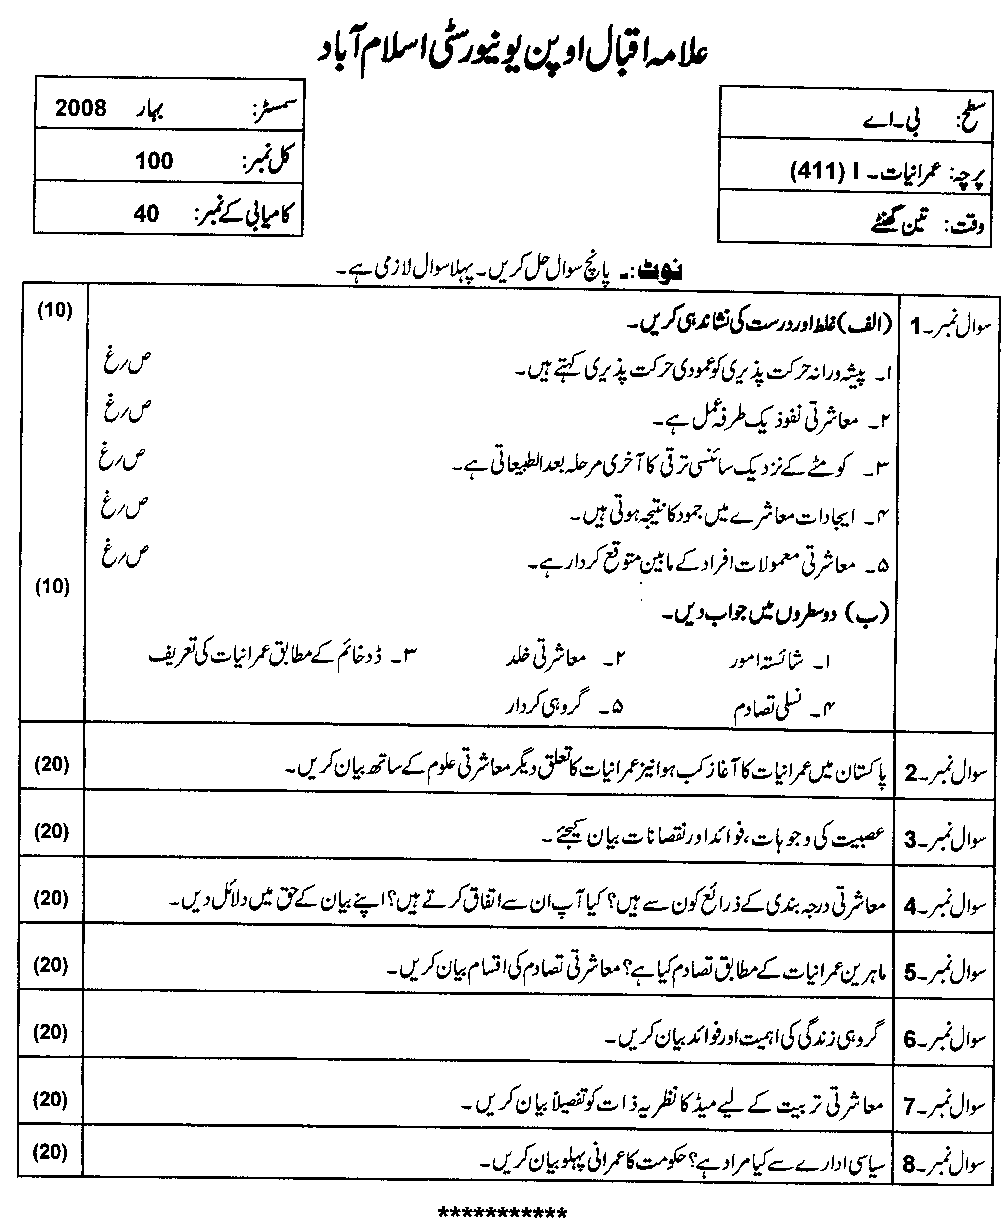 علامہ اقبال اوپن یونیورسٹی اسلام آباد
سطح: بی۔اے
پرچہ: عمرانیات۔ I (411)
وقت: تین گھنٹے
سمسٹر: بہار 2008
کل نمبر: 100
کامیابی کے نمبر: 40
نوٹ:۔ پانچ سوال حل کریں۔ پہلا سوال لازمی ہے۔
سوال نمبر۔1 (الف) غلط اور درست کی نشاندہی کریں۔ (10)
۱۔ پیشہ ورانہ حرکت پذیری کو عمودی حرکت پذیری کہتے ہیں۔ ص/غ
۲۔ معاشرتی نفوذ یک طرفہ عمل ہے۔ ص/غ
۳۔ کومٹے کے نزدیک سائنسی ترقی کا آخری مرحلہ بعد الطبیعاتی ہے۔ ص/غ
۴۔ ایجادات معاشرے میں جمود کا نتیجہ ہوتی ہیں۔ ص/غ
۵۔ معاشرتی معمولات افراد کے مابین متوقع کردار ہے۔ ص/غ
(ب) دو سطروں میں جواب دیں۔ (10)
۱۔ شائستہ امور ۲۔ معاشرتی خلد ۳۔ ڈدخائم کے مطابق عمرانیات کی تعریف
۴۔ نسلی تصادم ۵۔ گروہی کردار
سوال نمبر۔2 پاکستان میں عمرانیات کا آغاز کب ہوا نیز عمرانیات کا تعلق دیگر معاشرتی علوم کے ساتھ بیان کریں۔ (20)
سوال نمبر۔3 عصبیت کی وجوہات، فوائد اور نقصانات بیان کیجئے۔ (20)
سوال نمبر۔4 معاشرتی درجہ بندی کے ذرائع کون سے ہیں؟ کیا آپ ان سے اتفاق کرتے ہیں؟ اپنے بیان کے حق میں دلائل دیں۔ (20)
سوال نمبر۔5 ماہرین عمرانیات کے مطابق تصادم کیا ہے؟ معاشرتی تصادم کی اقسام بیان کریں۔ (20)
سوال نمبر۔6 گروہی زندگی کی اہمیت اور فوائد بیان کریں۔ (20)
سوال نمبر۔7 معاشرتی تربیت کے لیے میڈ کا نظریہ ذات کو تفصیلاً بیان کریں۔ (20)
سوال نمبر۔8 سیاسی ادارے سے کیا مراد ہے؟ حکومت کا عمرانی پہلو بیان کریں۔ (20)
***********